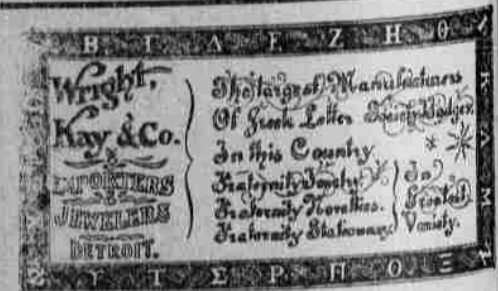 Β Γ Δ Ε Ζ Η Θ Ι
Κ Λ Μ
Wright,
Kay & Co.
IMPORTERS
&
JEWELERS
DETROIT.
The largest Manufacturers
Of Greek Letter Society Badges.
In this Country
Fraternity Jewelry.
Fraternity Novelties.
Fraternity Stationery.
In
Greatest
Variety.
Υ Τ Σ Ρ Π Ο Ξ